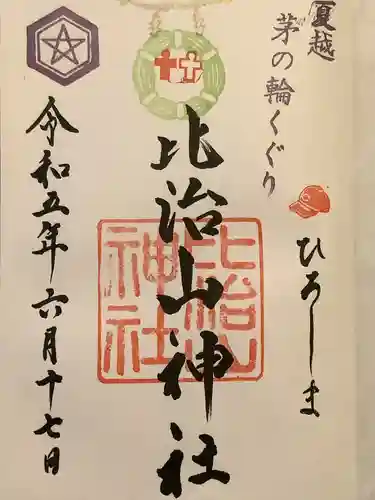 夏越
茅の輪くぐり
ひろしま
比治山神社
比治山
神社
令和五年六月十七日